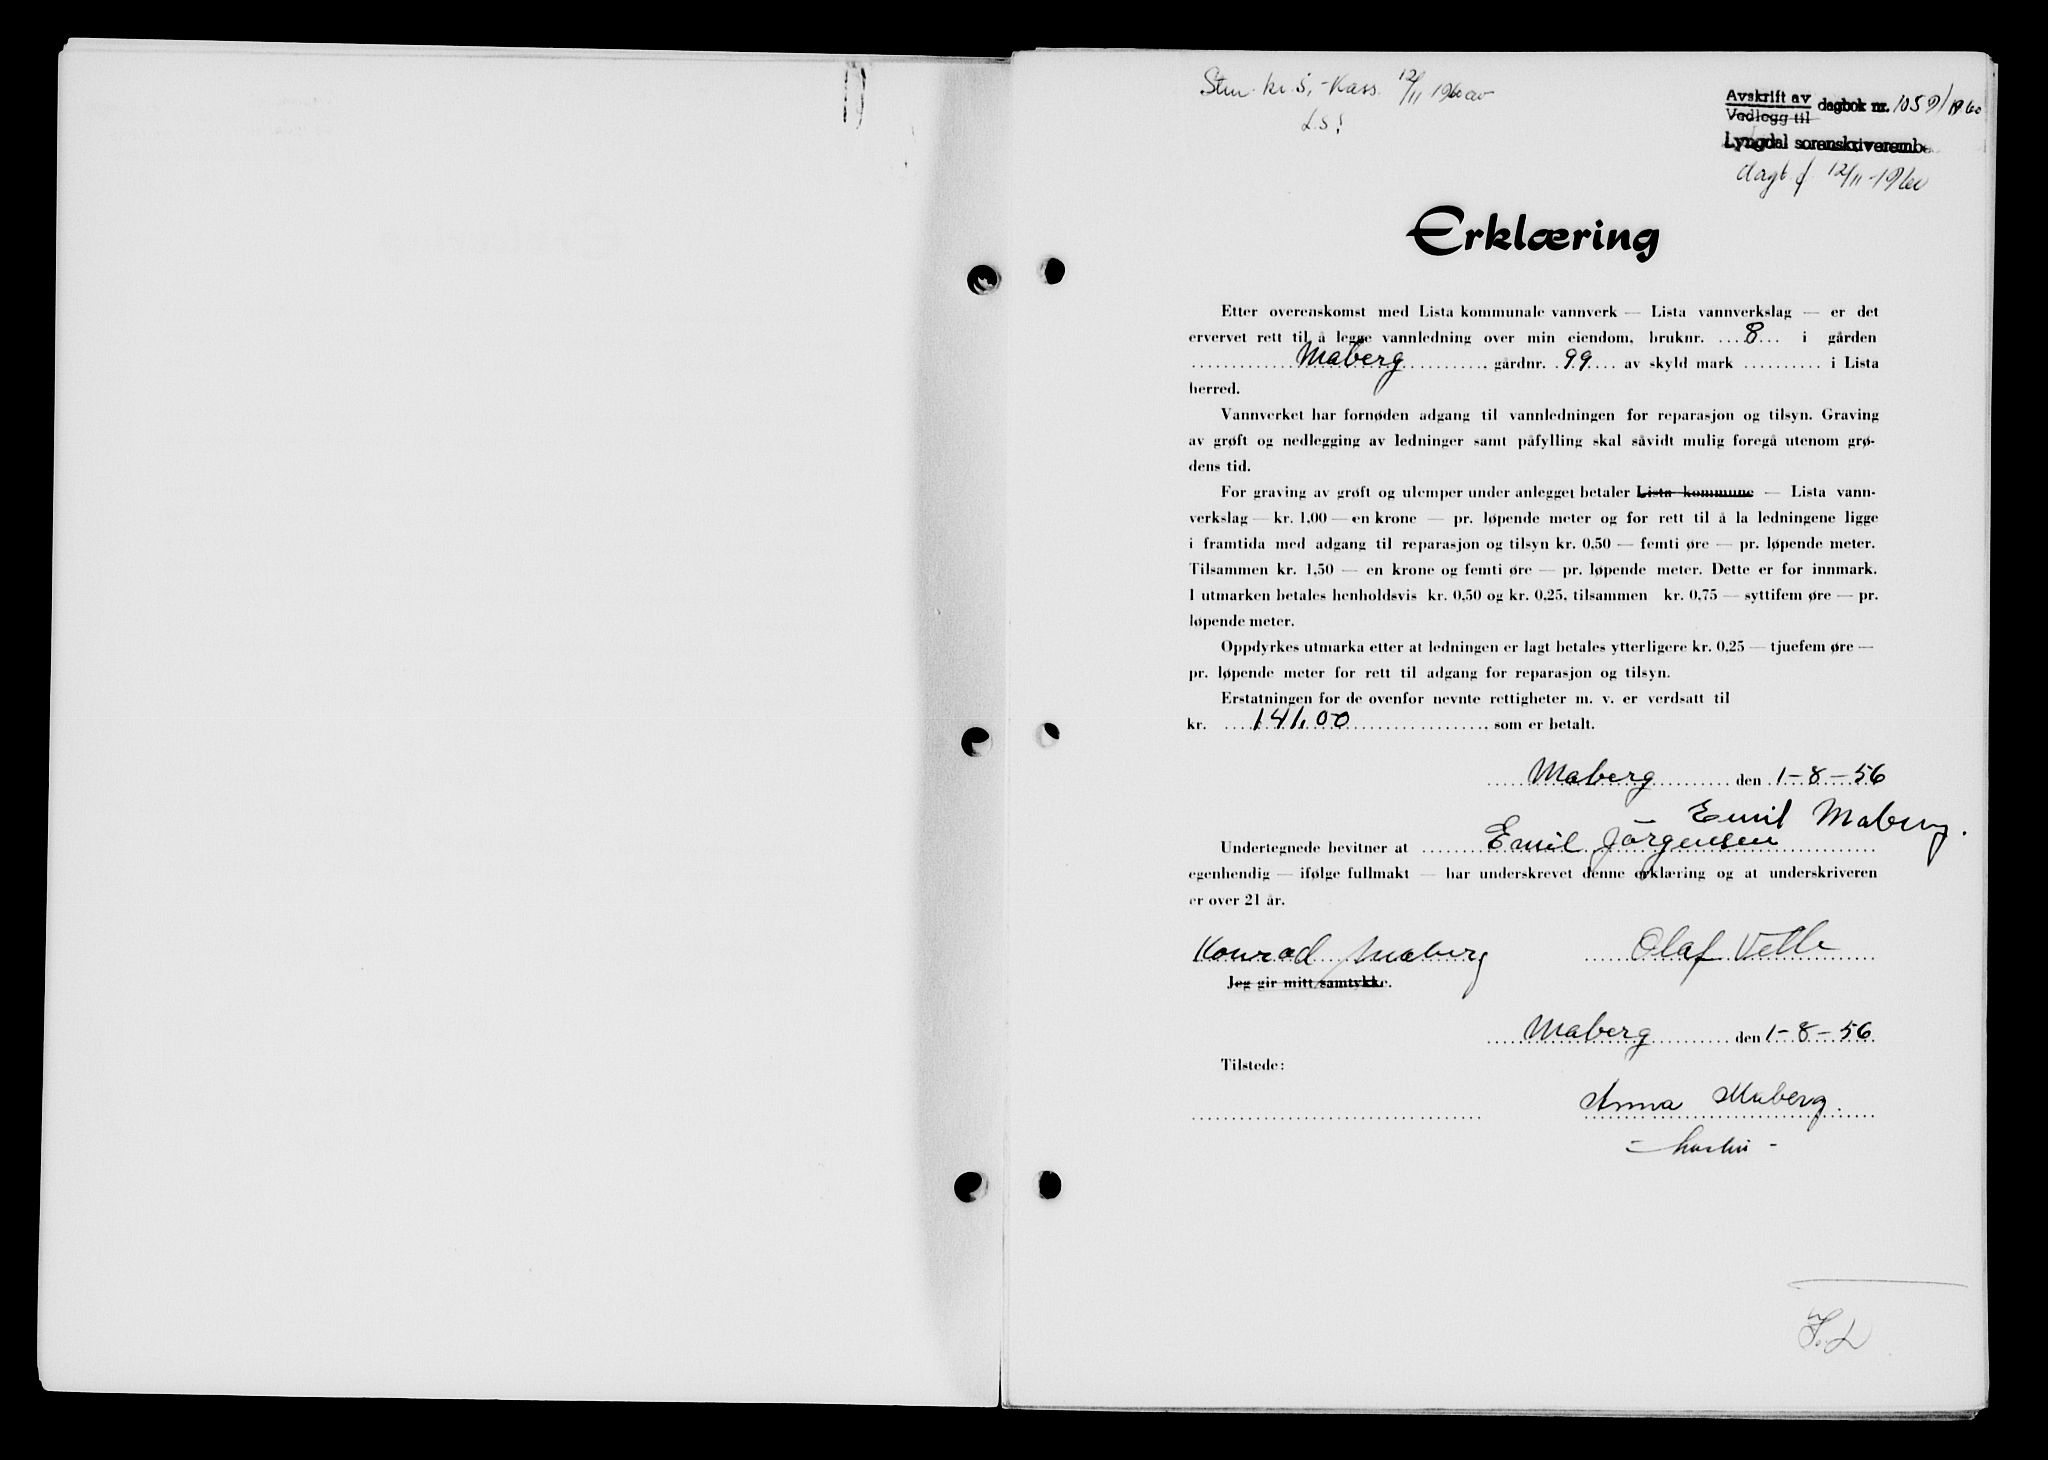 Stm. kr. 5,- Kass. 12/11 1960 av
L.S!
Avskrift av
Vedlegg til
dagbok nr. 1059/1960
Lyngdal sorenskriverembe
dagb.f 12/11-1960
Erklæring
Etter overenskomst med Lista kommunale vannverk — Lista vannverkslag — er det
ervervet rett til å legge vannledning over min eiendom, bruknr. 8 i gården
Maberg gårdnr. 99 av skyld mark .......... i Lista
herred.
Vannverket har fornøden adgang til vannledningen for reparasjon og tilsyn. Graving
av grøft og nedlegging av ledninger samt påfylling skal såvidt mulig foregå utenom grø-
dens tid.
For graving av grøft og ulemper under anlegget betaler Lista kommune — Lista vann-
verkslag — kr. 1,00 — en krone — pr. løpende meter og for rett til å la ledningene ligge
i framtida med adgang til reparasjon og tilsyn kr. 0,50 — femti øre — pr. løpende meter.
Tilsammen kr. 1,50 — en krone og femti øre — pr. løpende meter. Dette er for innmark.
I utmarken betales henholdsvis kr. 0,50 og kr. 0,25, tilsammen kr. 0,75 — syttifem øre — pr.
løpende meter.
Oppdyrkes utmarka etter at ledningen er lagt betales ytterligere kr. 0,25 — tjuefem øre —
pr. løpende meter for rett til adgang for reparasjon og tilsyn.
Erstatningen for de ovenfor nevnte rettigheter m. v. er verdsatt til
kr. 141,00 som er betalt.
Maberg den 1-8-56
Emil Maberg.
Undertegnede bevitner at Emil Jørgensen
egenhendig — ifølge fullmakt — har underskrevet denne erklæring og at underskriveren
er over 21 år.
Konrad Maberg Olaf Vetle
Jeg gir mitt samtykke.
Maberg den 1-8-56
Tilstede:
Anna Maberg.
- hustru -